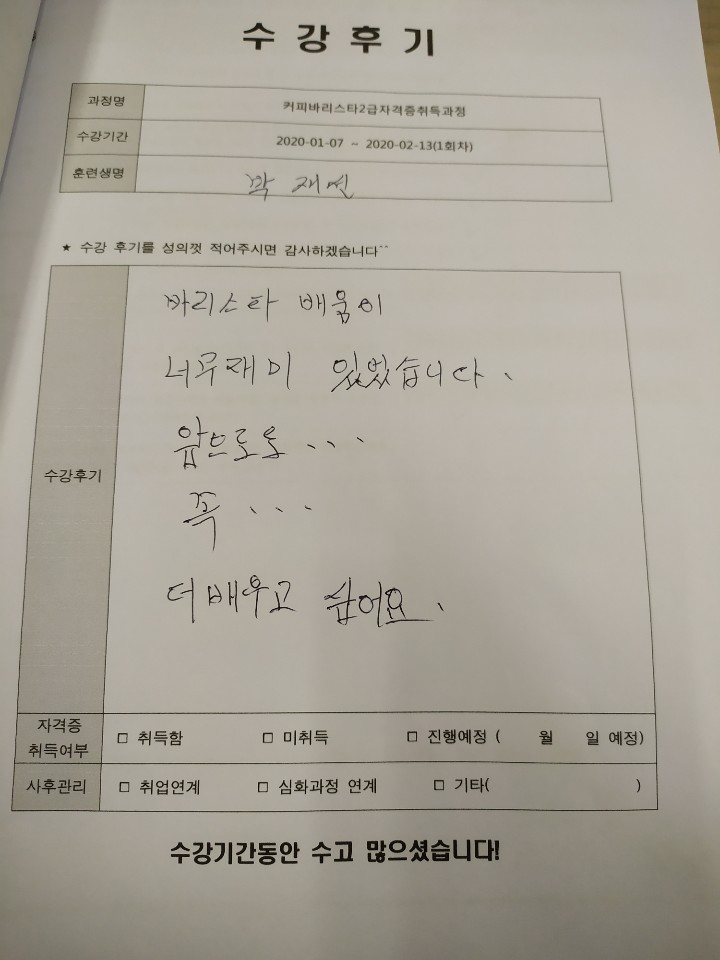 수 강 후 기
과정명 커피바리스타2급자격증취득과정
수강기간 2020-01-07 ~ 2020-02-13(1회차)
훈련생명 박 재연
★ 수강 후기를 성의껏 적어주시면 감사하겠습니다^^
바리스타 배움이
너무재미 있었습니다.
수강후기
앞으로도 ...
쭉 ...
더배우고 싶어요.
자격증
취득여부 □ 취득함 □ 미취득 □ 진행예정 ( 월 일 예정)
사후관리 □ 취업연계 □ 심화과정 연계 □ 기타( )
수강기간동안 수고 많으셨습니다!